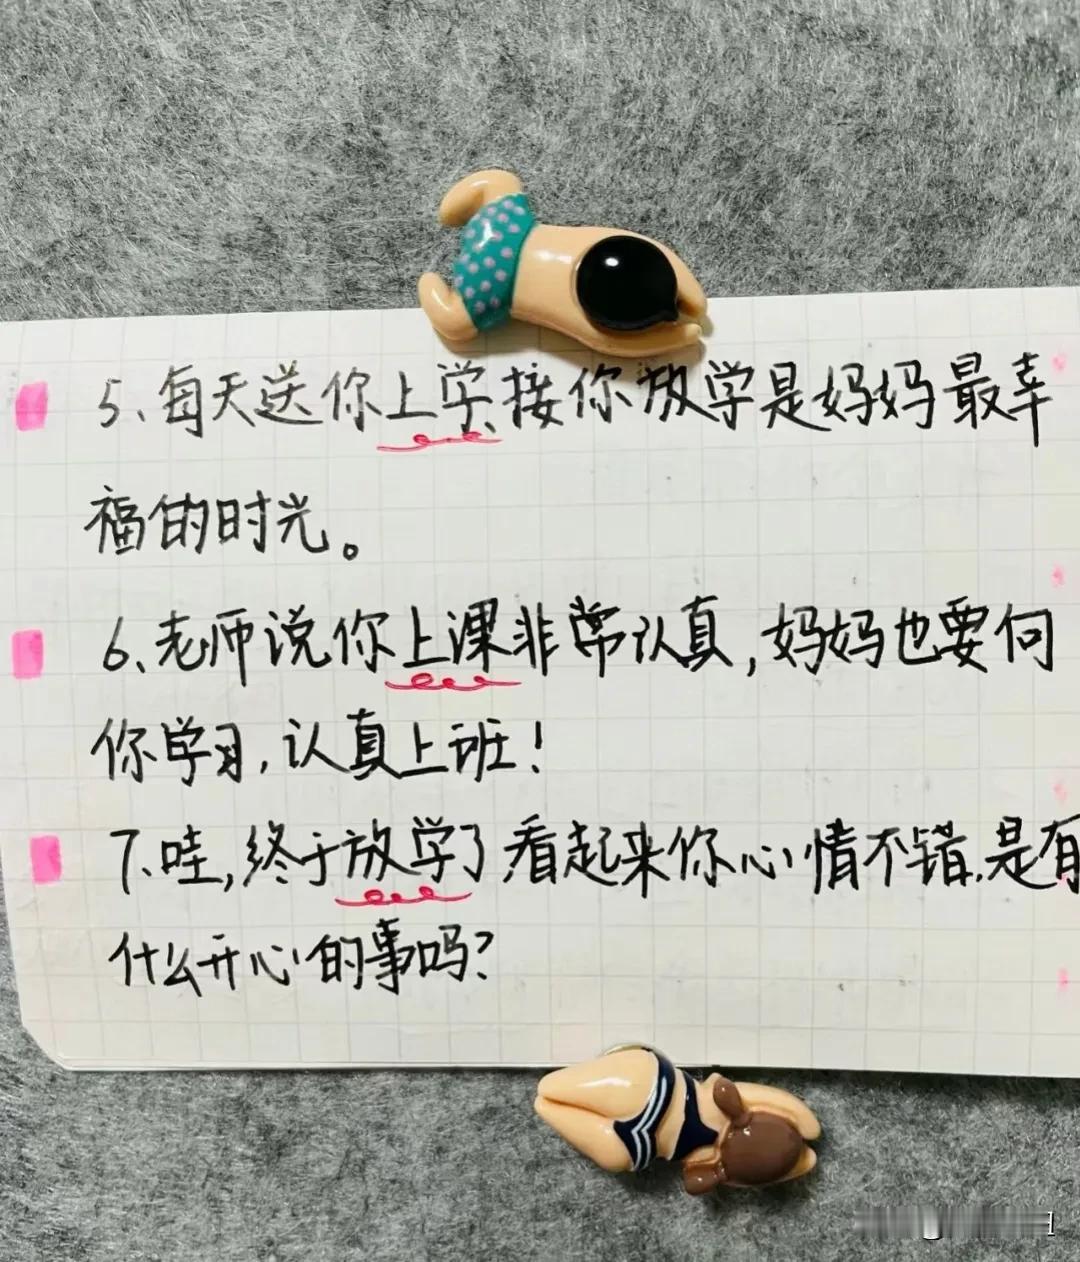 5、每天送你上学、接你放学是妈妈最幸
福的时光。
6、老师说你上课非常认真,妈妈也要向
你学习,认真上班!
7、哇,终于放学了,看起来你心情不错,是有
什么开心的事吗?